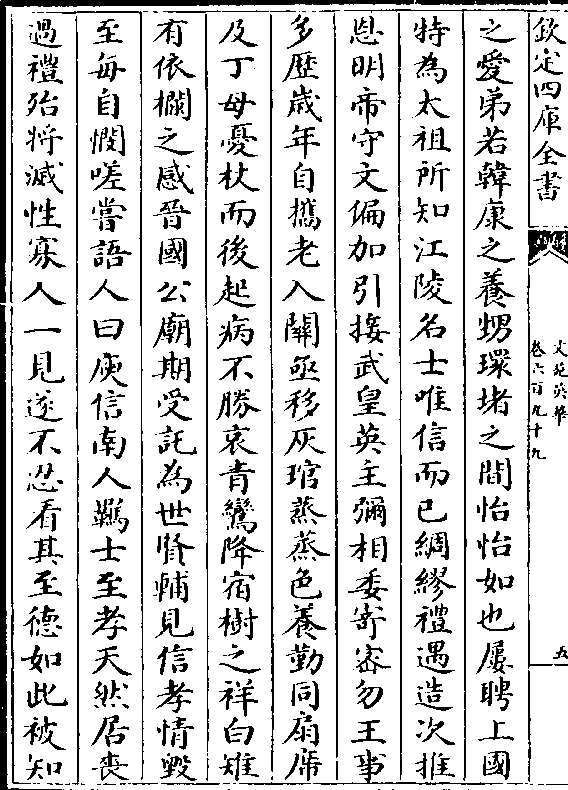 欽定四庫全書
文苑英華
卷六百九十九
五
之愛弟若韓康之養甥環堵之間怡怡如也屢聘上國
特為太祖所知江陵名士唯信而已綢繆禮遇造次推
恩明帝守文偏加引接武皇英主彌相委寄宻勿王事
多歴歲年自攜老入關亟移灰琯蒸蒸色養勤同扇席
及丁母憂杖而後起病不勝哀青鸞降宿樹之祥白雉
有依欄之感晉國公廟期受託為世賢輔見信孝情毀
至每自憫嗟嘗語人曰庾信南人羈士至孝天然居喪
過禮殆將滅性寡人一見遂不忍看其至德如此被知